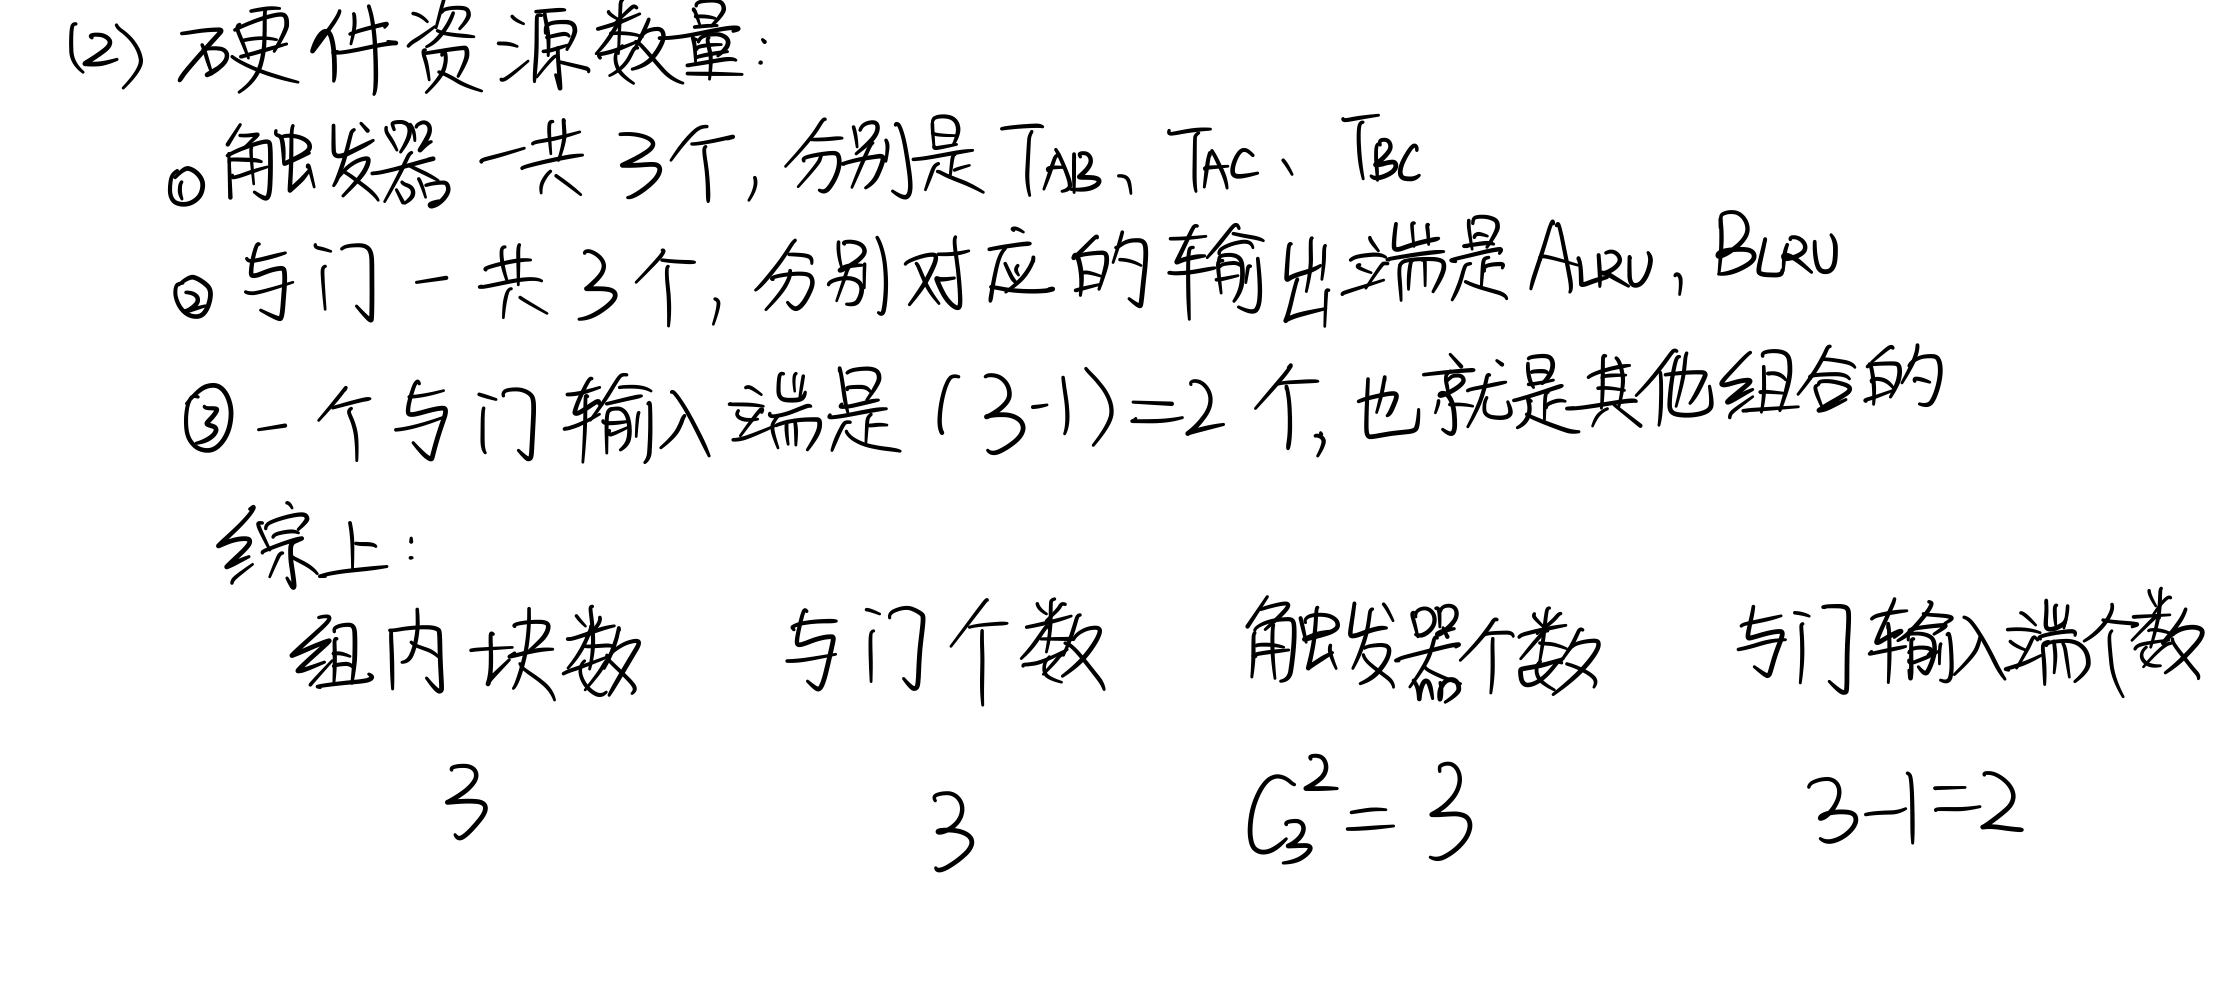 (2) 硬件资源数量:
① 触发器一共3个, 分别是 TAB、TAC、TBC
② 与门一共3个, 分别对应的输出端是 ALRU, BLRU
③ 一个与门输入端是 (3-1)=2 个, 也就是其他组合的
综上:
组内块数 与门个数 触发器个数 与门输入端个数
3 3 C₃²=3 3-1=2